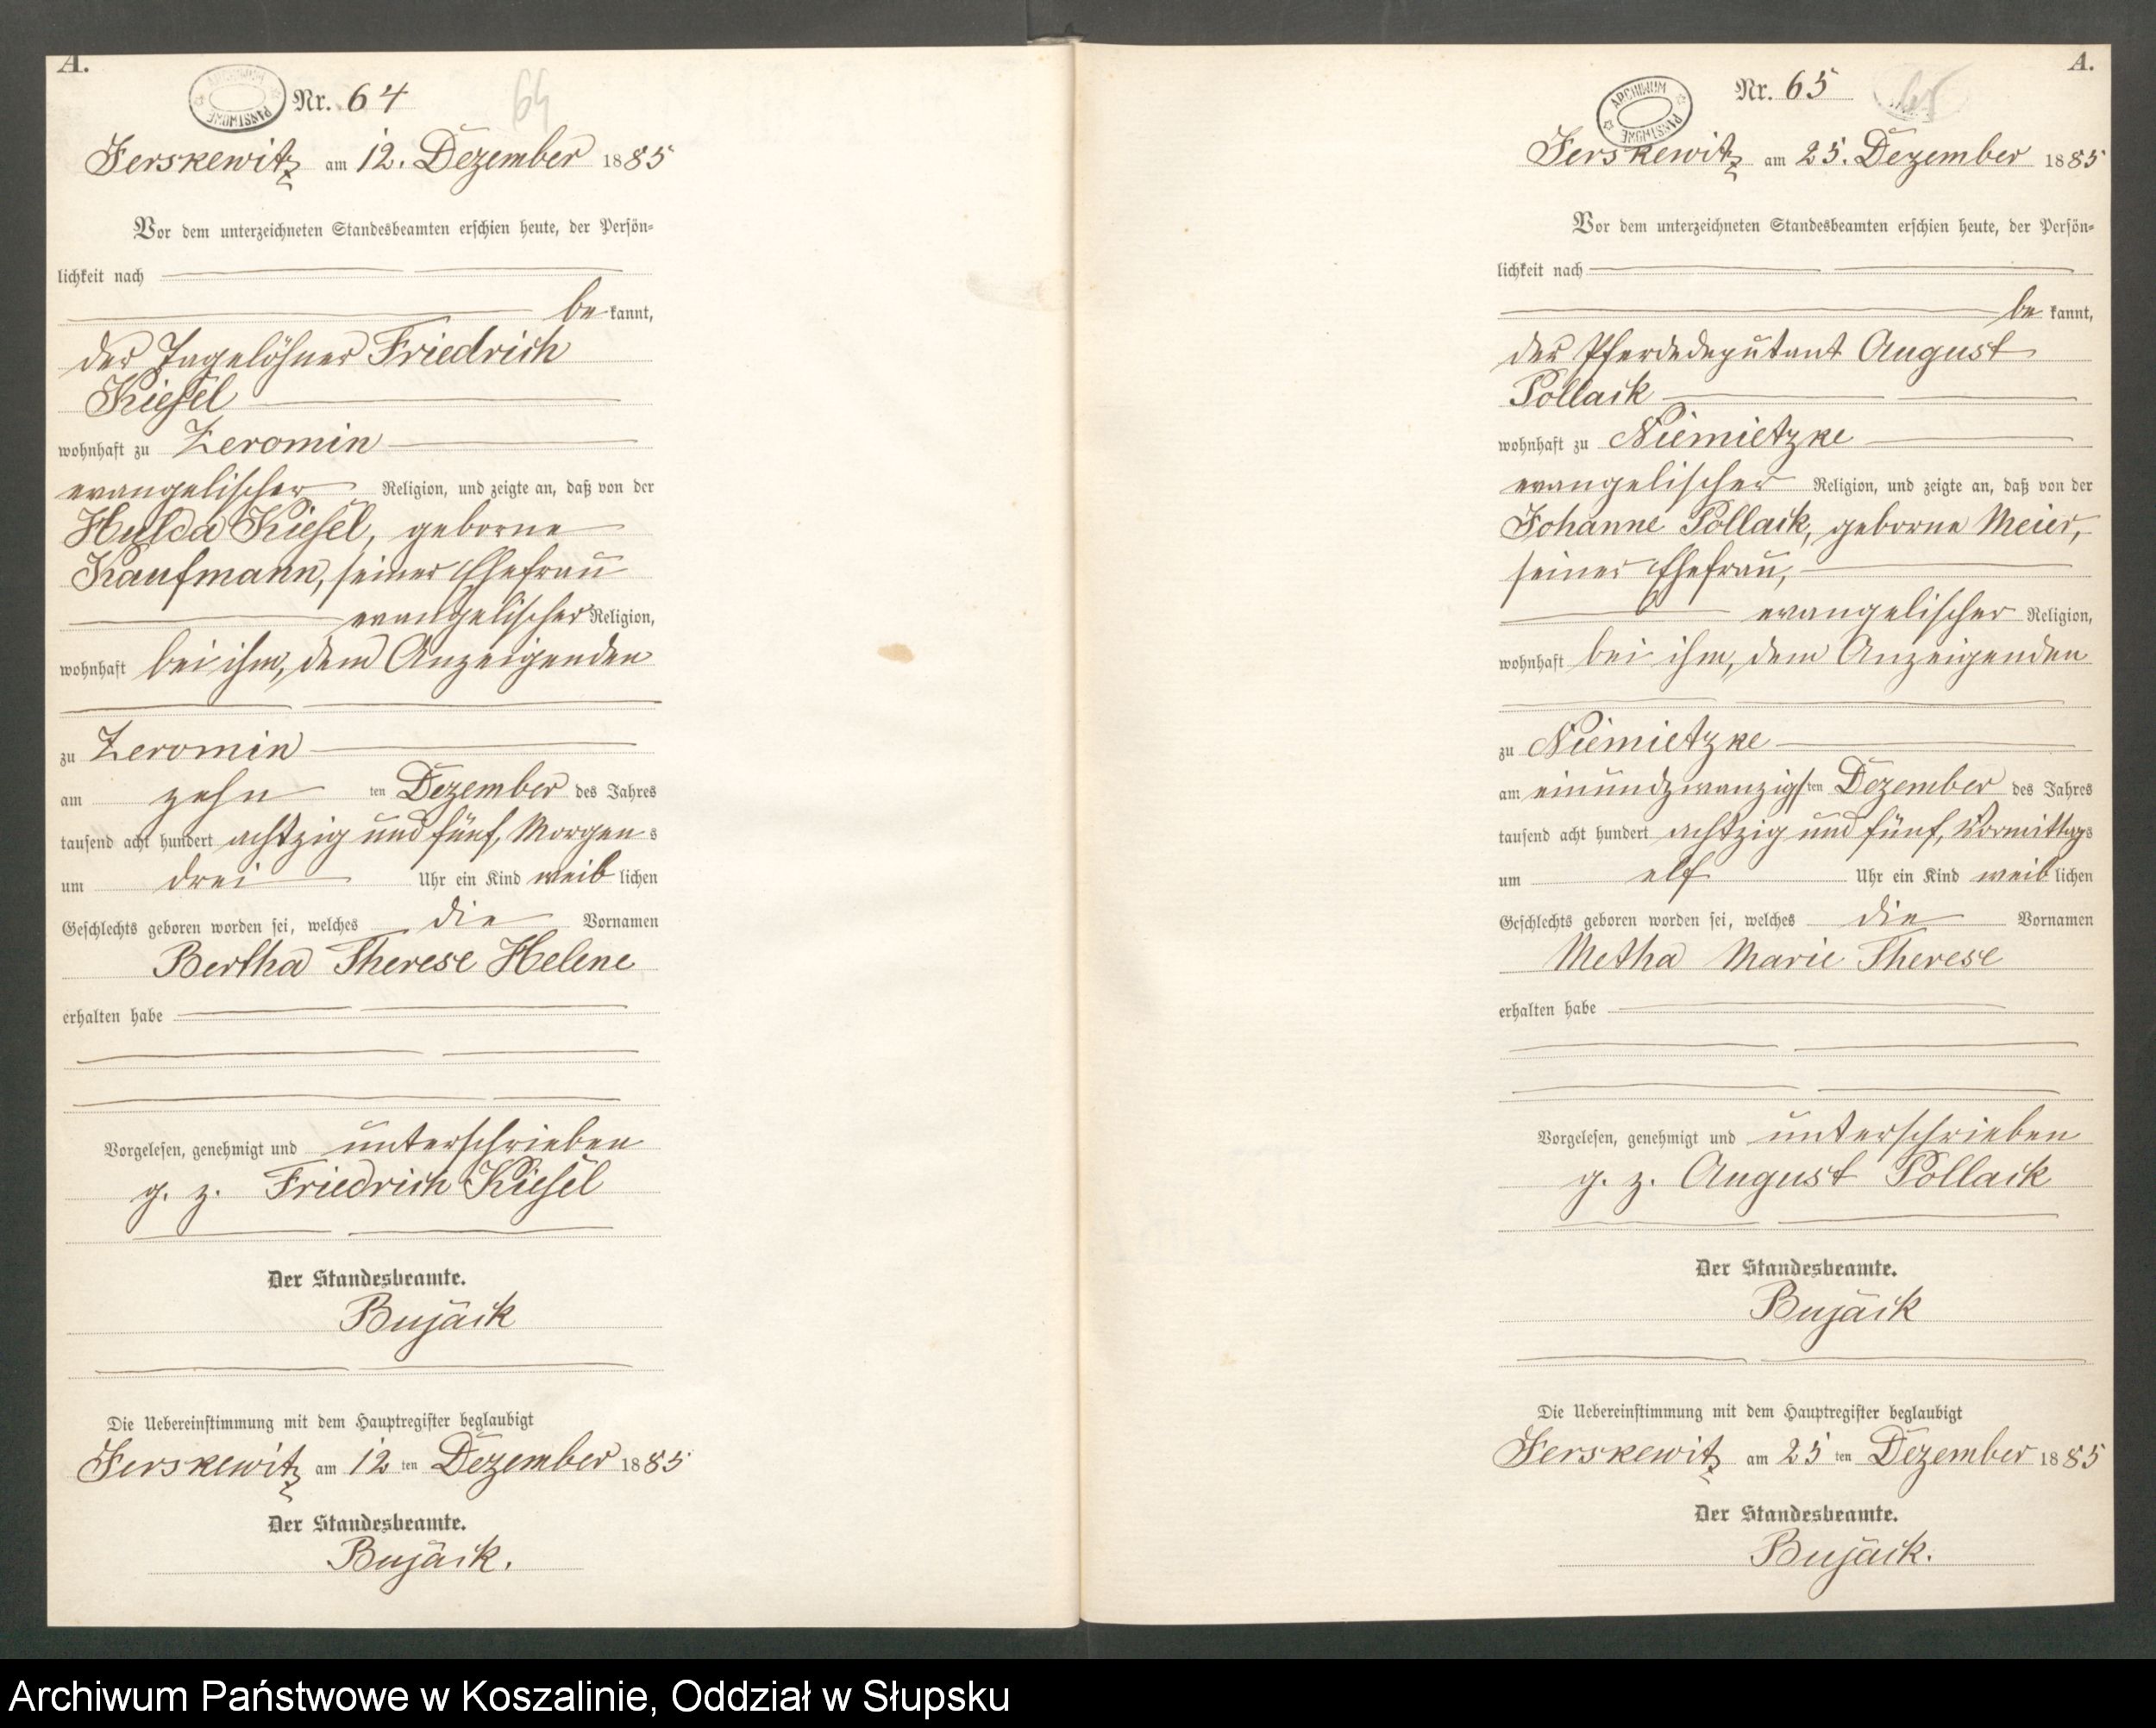 A.
ARCHIWUM PAŃSTWOWE
Nr. 64
64
Jerskewitz am 12. Dezember 1885
Vor dem unterzeichneten Standesbeamten erschien heute, der Persön-
lichkeit nach
bekannt,
der Tagelöhner Friedrich
Kiesel
wohnhaft zu Zeromin
evangelischer Religion, und zeigte an, daß von der
Hulda Kiesel, geborne
Kaufmann, seiner Ehefrau
evangelischer Religion,
wohnhaft bei ihm, dem Anzeigenden
zu Zeromin
am zehn ten Dezember des Jahres
tausend acht hundert achtzig und fünf, Morgens
um drei Uhr ein Kind weiblichen
Geschlechts geboren worden sei, welches die Vornamen
Bertha Therese Helene
erhalten habe
Vorgelesen, genehmigt und unterschrieben
g. z. Friedrich Kiesel
Der Standesbeamte.
Bujack
Die Uebereinstimmung mit dem Hauptregister beglaubigt
Jerskewitz am 12 ten Dezember 1885
Der Standesbeamte.
Bujack.
A.
ARCHIWUM PAŃSTWOWE
Nr. 65
65
Jerskewitz am 25. Dezember 1885
Vor dem unterzeichneten Standesbeamten erschien heute, der Persön-
lichkeit nach
bekannt,
der Pferdedeputant August
Pollack
wohnhaft zu Niemietzke
evangelischer Religion, und zeigte an, daß von der
Johanne Pollack, geborne Meier,
seiner Ehefrau,
evangelischer Religion,
wohnhaft bei ihm, dem Anzeigenden
zu Niemietzke
am einundzwanzigsten Dezember des Jahres
tausend acht hundert achtzig und fünf, Vormittags
um elf Uhr ein Kind weiblichen
Geschlechts geboren worden sei, welches die Vornamen
Metha Marie Therese
erhalten habe
Vorgelesen, genehmigt und unterschrieben
g. z. August Pollack
Der Standesbeamte.
Bujack
Die Uebereinstimmung mit dem Hauptregister beglaubigt
Jerskewitz am 25 ten Dezember 1885
Der Standesbeamte.
Bujack.
Archiwum Państwowe w Koszalinie, Oddział w Słupsku